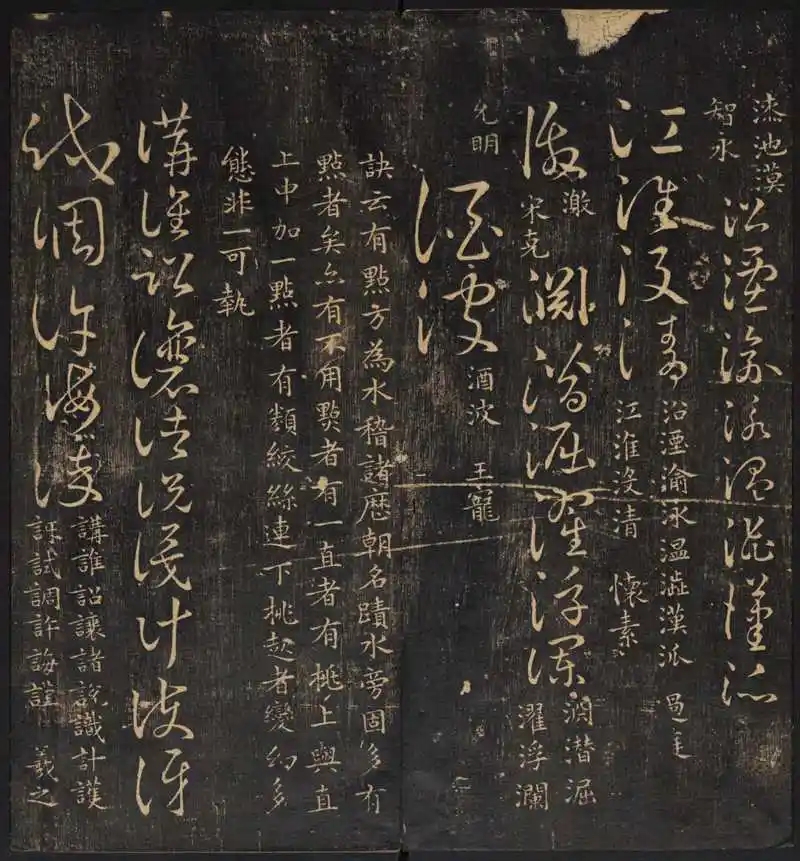 漆池漠
智永
沿湮瀹泳温澁漢派
沿湮瀹泳温澁漢派 過庭
江淮没清
江淮没清 懷素
澂
澂
宋克
淵潛淈濯浮瀾
淵潛淈
濯浮瀾
允明
酒波
酒波 王寵
訣云有點方為水稽諸歷朝名蹟水旁固多有
點者矣亦有不用點者有一直者有挑上與直
上中加一點者有類絞絲連下挑起者變幻多
態非一可執
講誰詔讓諸說識計護訝
試調許誨謹
講誰詔讓諸說識計護
訝試調許誨謹 羲之